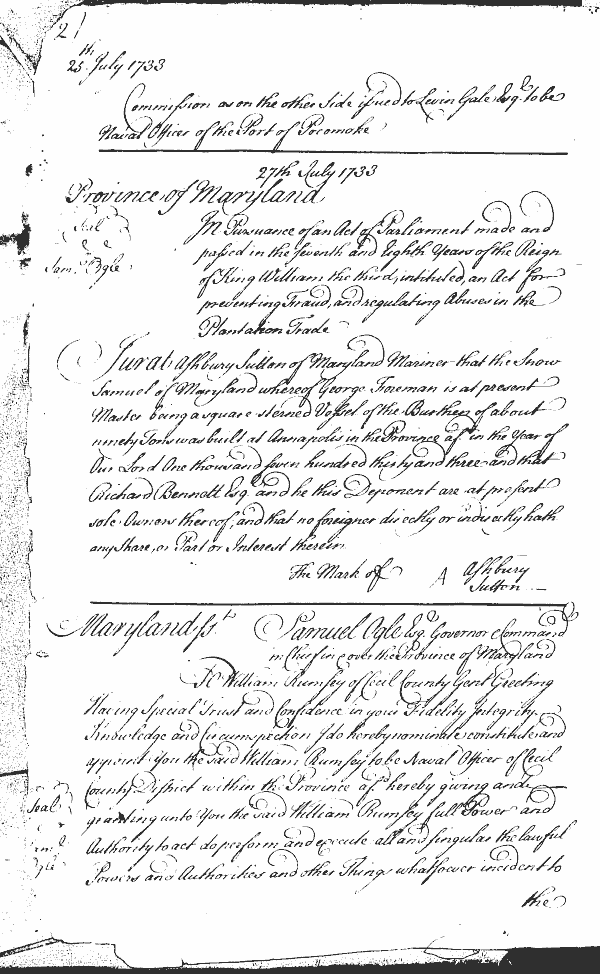 2
25th July 1733
Commission as on the other Side issued to Levin Gale Esqr. to be
Naval Officer of the Port of Pocomoke
27th July 1733
Province of Maryland
Seal
Sam. Ogle
In Pursuance of an Act of Parliament made and
passed in the Seventh and Eighth Years of the Reign
of King William the third, intituled, an Act for
preventing Fraud, and regulating Abuses in the
Plantation Trade
Jurat Ashbury Sutton of Maryland Mariner that the Snow
Samuel of Maryland whereof George Foreman is at present
Master being a square sterned Vessel of the Burthen of about
ninety Tons was built at Annapolis in the Province afd in the Year of
Our Lord One thousand seven hundred thirty and three and that
Richard Bennett Esqr. and he this Deponent are at present
sole Owners thereof, and that no foreigner directly or indirectly hath
any Share, or Part or Interest therein
The Mark of A Ashbury
Sutton
Maryland ss.t Samuel Ogle Esqr. Governor & Command
in Chief in & over the Province of Maryland
To William Rumsey of Cecil County Gent Greeting
Having Special Trust and Confidence in your Fidelity Integrity
Knowledge and Circumspection I do hereby nominate constitute and
appoint You the said William Rumsey to be Naval Officer of Cecil
County District within the Province afd hereby giving and
granting unto You the said William Rumsey full Power and
Seal
Authority to act do perform and execute all and singular the lawful
Sam.
Ogle
Powers and Authorities and other Things whatsoever incident to
the